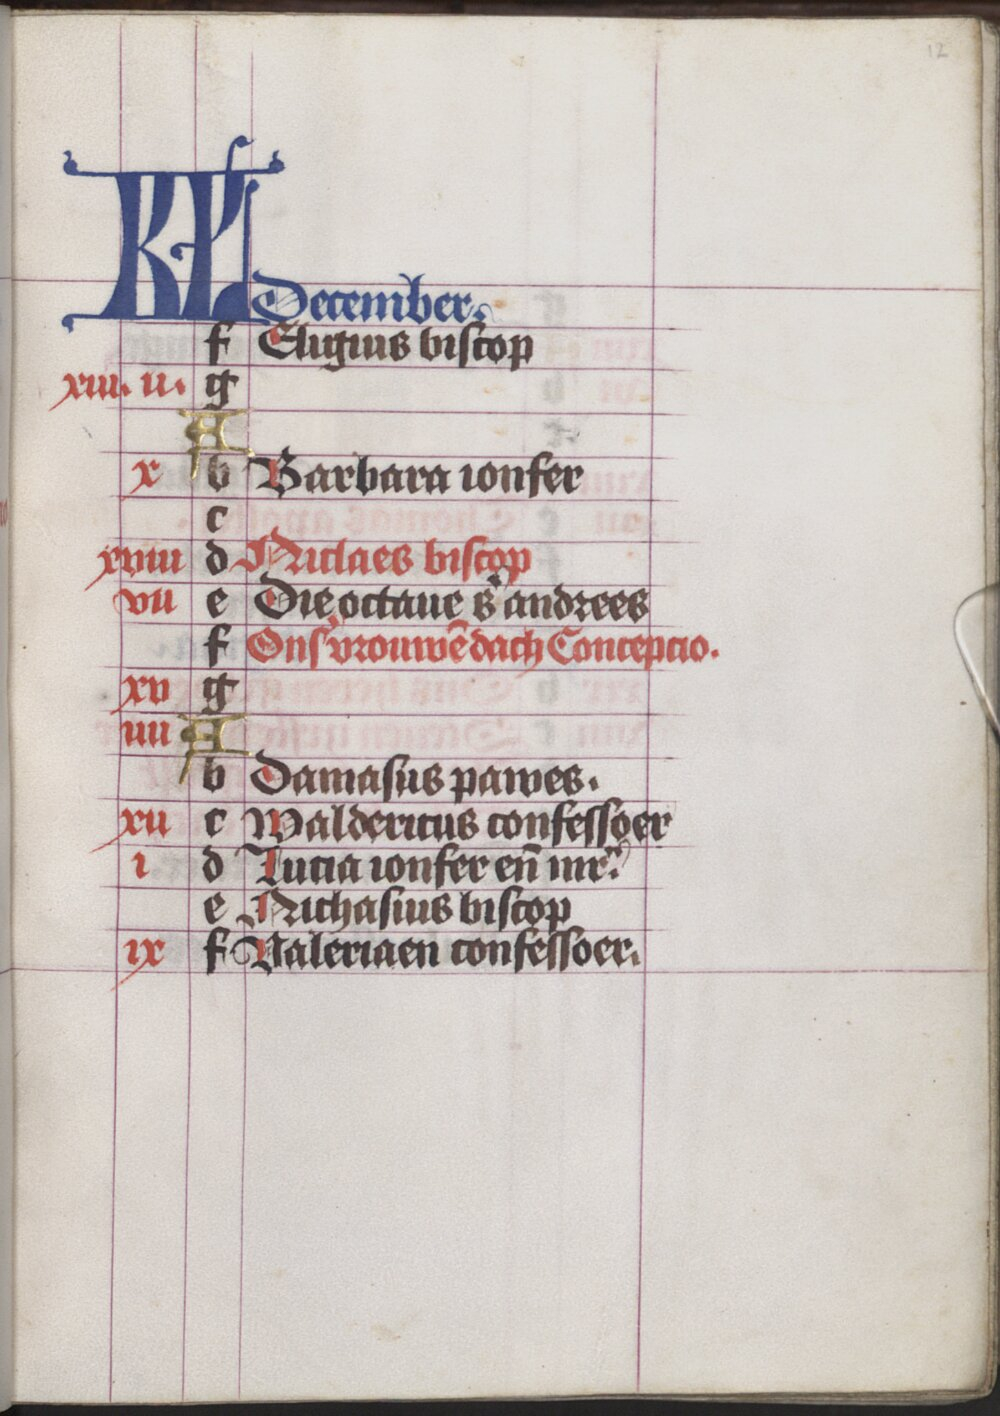 12
KL December.
f Eligius biscop
xiii. ii. g
A
x b Barbara ionfer
c
xviii d Niclaes biscop
vii e Die octaue s' andrees
f Ons vrouwē dach Concepcio.
xv g
iiii A
b Damasus pawes.
xii c Waldericus confessoer
i d Lucia ionfer en̄ mr̄.
e Nichasius biscop
ix f Valeriaen confessoer.